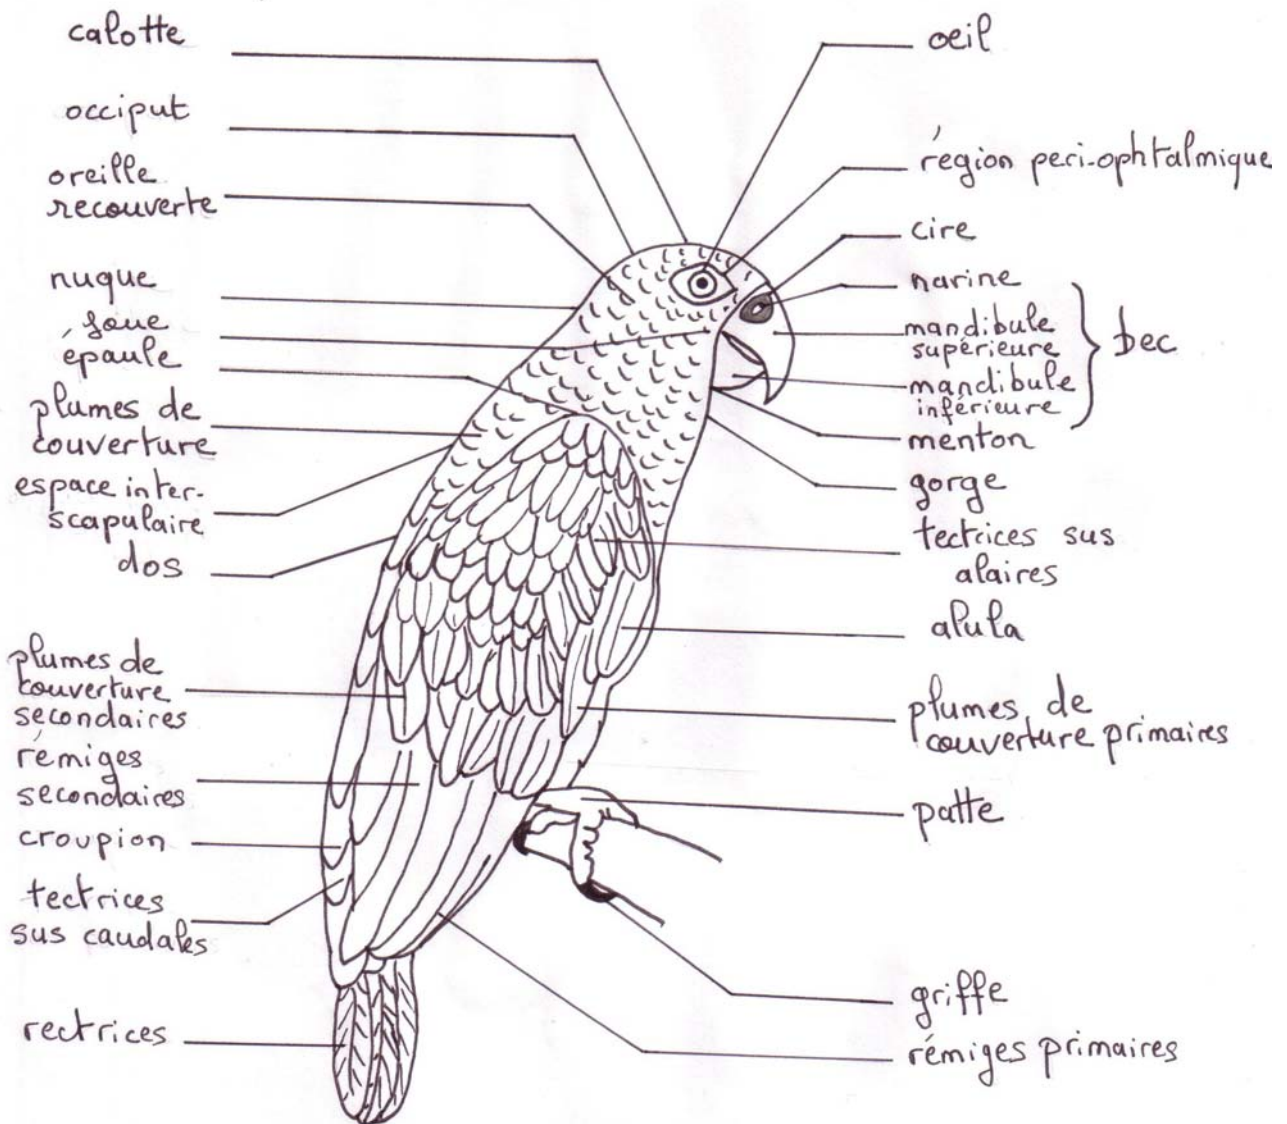 calotte
occiput
oreille
recouverte
nuque
joue
épaule
plumes de
couverture
espace inter-
scapulaire
dos
plumes de
couverture
secondaires
rémiges
secondaires
croupion
tectrices
sus caudales
rectrices
oeil
région peri-ophtalmique
cire
narine
mandibule
supérieure
mandibule
inférieure
bec
menton
gorge
tectrices sus
alaires
alula
plumes de
couverture primaires
patte
griffe
rémiges primaires